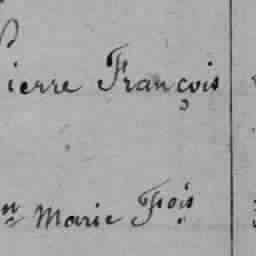 Pierre François
n Marie Fçois